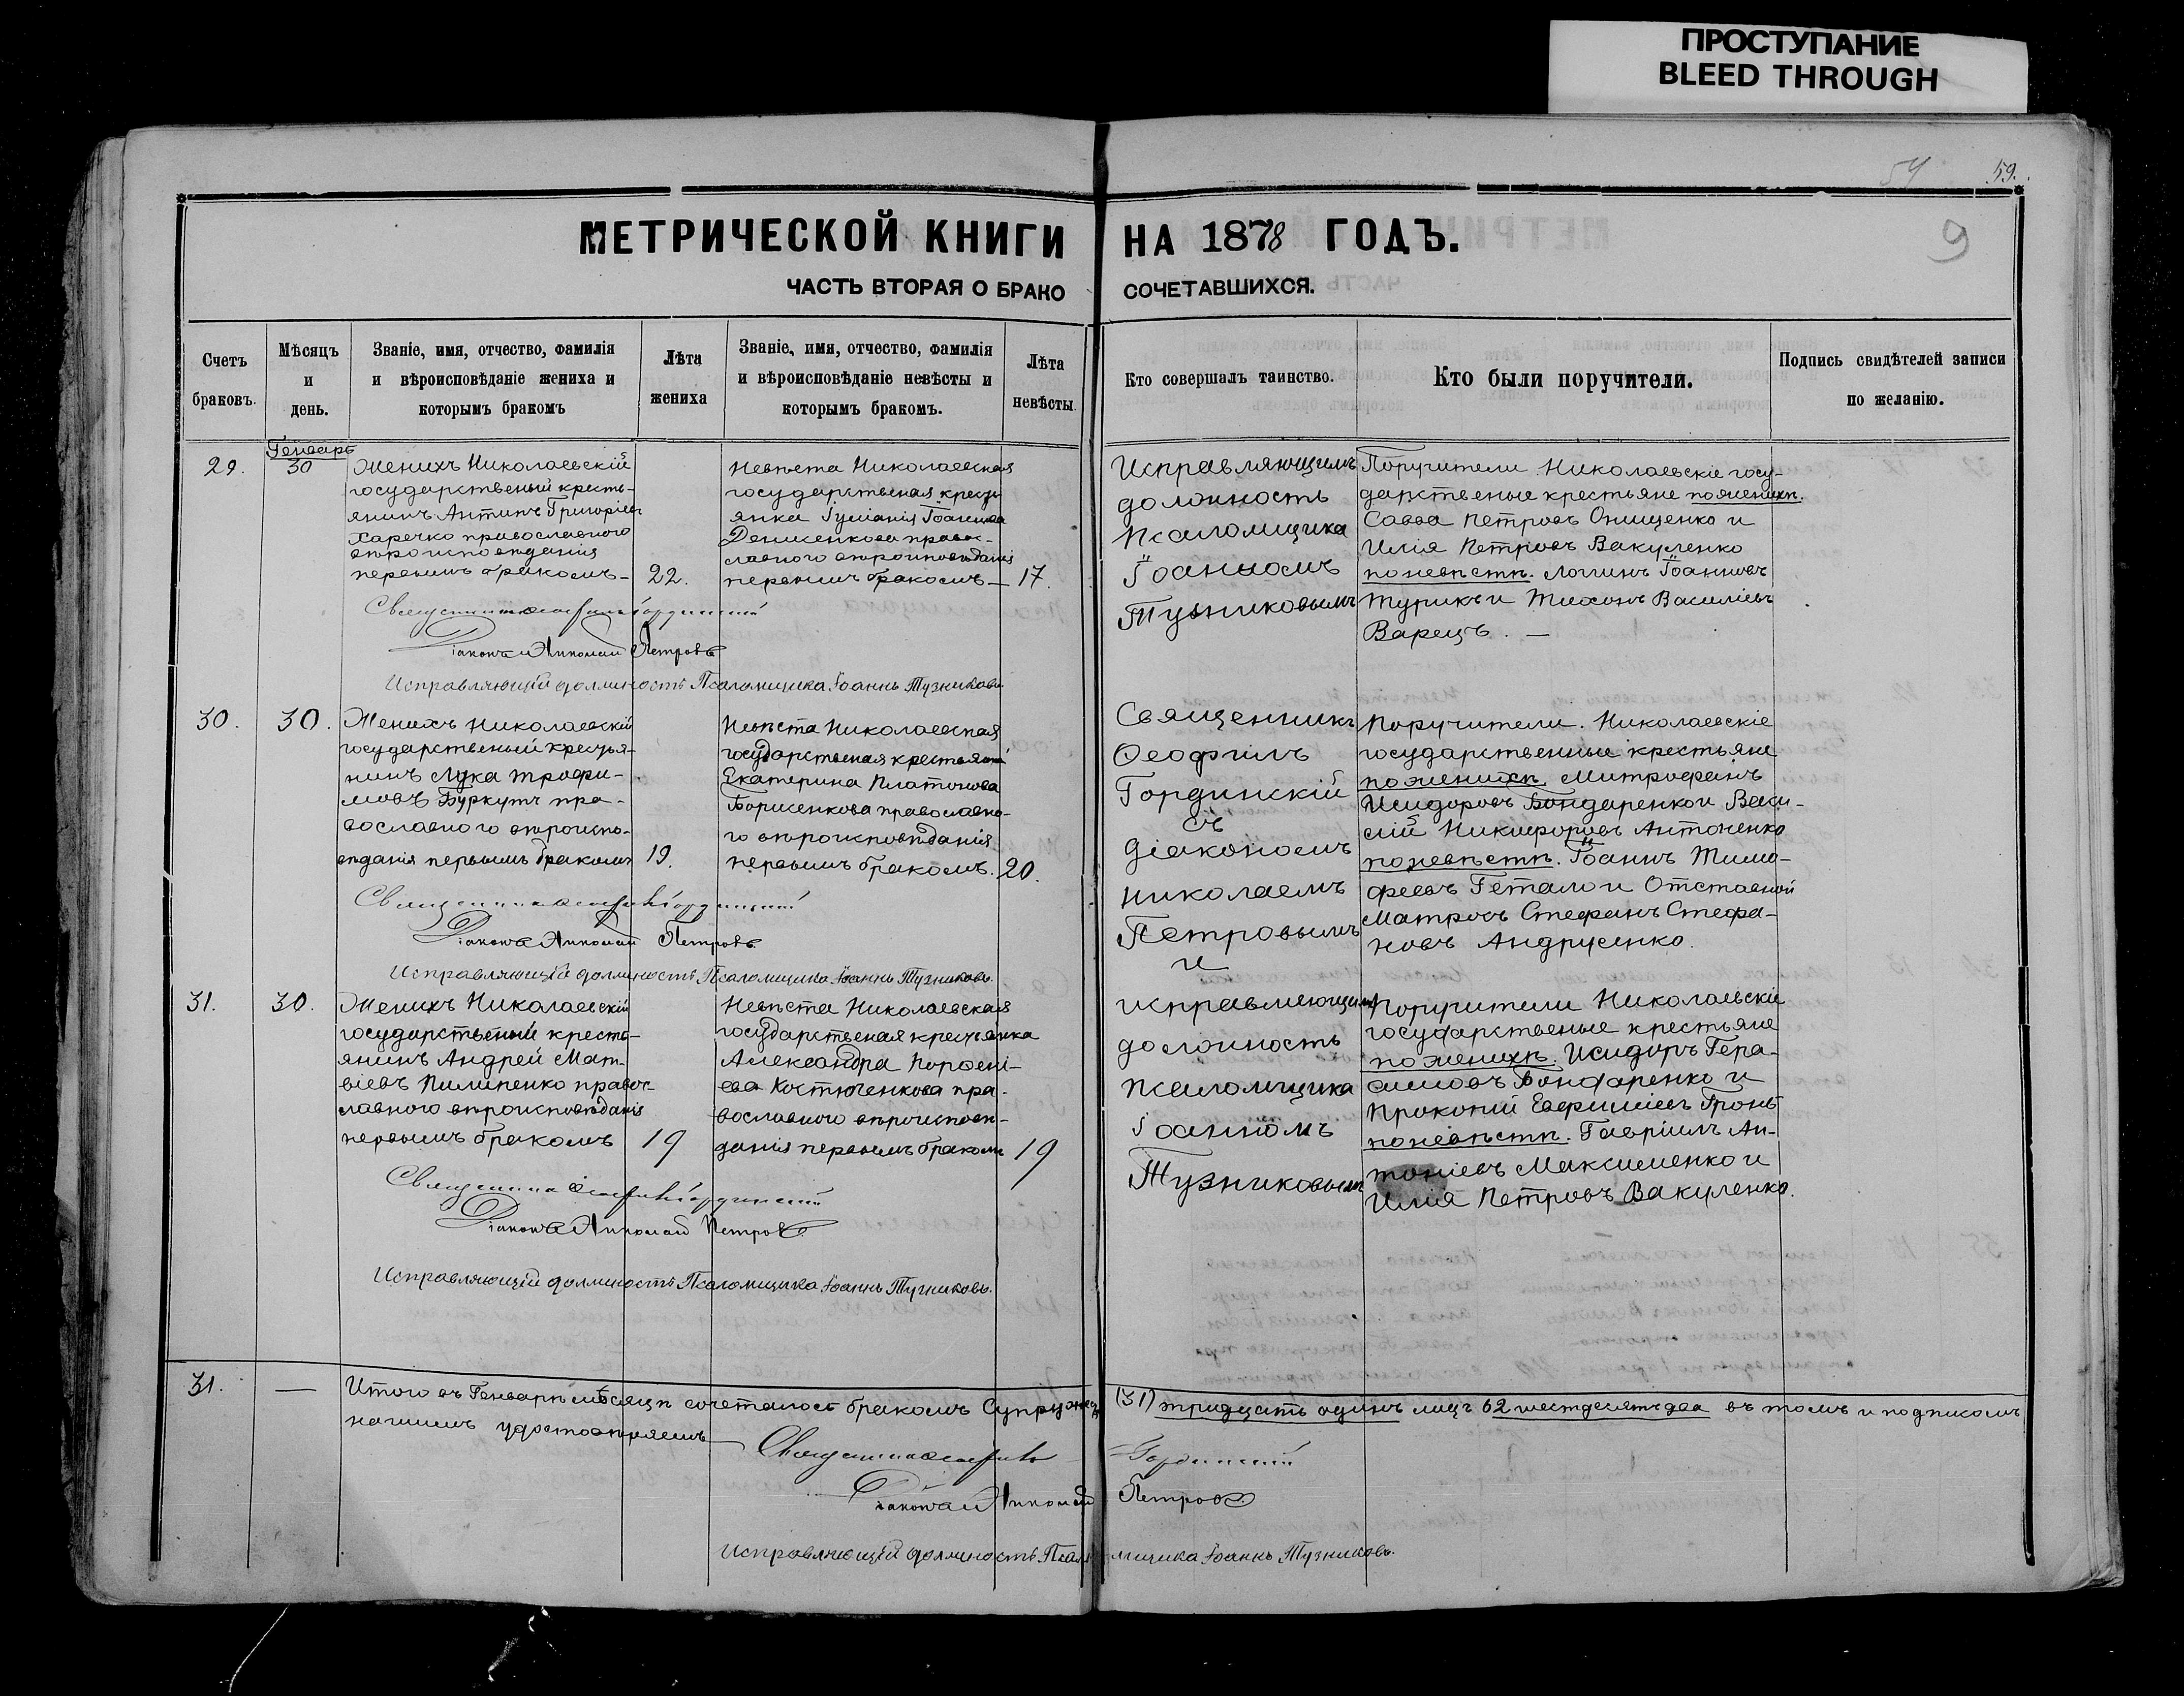 ПРОСТУПАНИЕ
BLEED THROUGH
54 59.
9
МЕТРИЧЕСКОЙ КНИГИ НА 1878 ГОДЪ.
ЧАСТЬ ВТОРАЯ О БРАКО СОЧЕТАВШИХСЯ.
Счетъ
браковъ.
Мѣсяцъ
и
день.
Званіе, имя, отчество, фамилія
и вѣроисповѣданіе жениха и
которымъ бракомъ
Лѣта
жениха
Званіе, имя, отчество, фамилія
и вѣроисповѣданіе невѣсты и
которымъ бракомъ.
Лѣта
невѣсты.
Кто совершалъ таинство.
Кто были поручители.
Подпись свидѣтелей записи
по желанію.
29.
Генварь
30
Женихъ Николаевскій
государственый кресть-
янинъ Антипъ Григоріевъ
Харечко православного
вѣроисповѣданія
первымъ бракомъ-
22.
Невѣста Николаевская
государственая кресть
янка Іуліанія Іоаннова
Денисенкова правос-
лавного вѣроисповѣданія
первымъ бракомъ-
17.
Исправляющимъ
должность
Псаломщика
Іоанномъ
Тузниковымъ
Поручители Николаевскіе госу-
дарственые крестьяне по женихѣ.
Савва Петровъ Онищенко и
Илія Петровъ Вакуленко
по невѣстѣ. Логинъ Іоанновъ
Турикъ и Тихонъ Василіевъ
Варецъ. —
Священникъ Феофилъ Гординскій
Діаконъ Николай Петровъ
Исправляющій должность Псаломщика Іоаннъ Тузниковъ
30.
30.
Женихъ Николаевскій
государственый крестья-
нинъ Лука Трофи-
мовъ Буркутъ пра-
вославного вѣроиспо-
вѣданія первымъ бракомъ
19.
Невѣста Николаевская
государственая крестьянка
Екатерина Платонова
Борисенкова православно-
го вѣроисповѣданія
первымъ бракомъ.
20.
Священникъ
Феофилъ
Гординскій
съ
діакономъ
Николаемъ
Петровымъ
и
Поручители. Николаевскіе
государственные крестьяне
по женихѣ Митрофанъ
Исидоровъ Бондаренко и Васи-
лій Никифоровъ Антоненко
по невѣстѣ. Іоаннъ Тимо-
феевъ Гетало и Отставной
Матросъ Стефанъ Стефа-
новъ Андрусенко.
Священникъ Феофилъ Гординскій
Діаконъ Николай Петровъ
Исправляющій должность Псаломщика Іоаннъ Тузниковъ.
31.
30.
Женихъ Николаевскій
государственый кресть-
янинъ Андрей Мат-
віевъ Пилипенко правос-
лавного вѣроисповѣданія
первымъ бракомъ
19
Невѣста Николаевская
государственая крестьянка
Александра Порфирі-
ева Костюченкова пра-
вославного вѣроисповѣ-
данія первымъ бракомъ
19
исправляющимъ
должность
Псаломщика
Іоанномъ
Тузниковымъ
Поручители Николаевскіе
государственые крестьяне
по женихѣ. Исидоръ Гера-
симовъ Бондаренко и
Прокопій Евфиміевъ Гронь
по невѣстѣ. Гавріилъ Ан-
тоніевъ Максименко и
Илія Петровъ Вакуленко.
Священникъ Феофилъ Гординскій
Діаконъ Николай Петровъ
Исправляющій должность Псаломщика Іоаннъ Тузниковъ.
31. — Итого въ Генварѣ мѣсяцѣ сочеталось бракомъ Супружествъ (31) тридцать одинъ лицъ 62 шестдесятъ два въ томъ и подписомъ
нашимъ удостовѣряемъ
Священникъ Феофилъ Гординскій
Діаконъ Николай Петровъ.
Исправляющій должность Псаломщика Іоаннъ Тузниковъ.